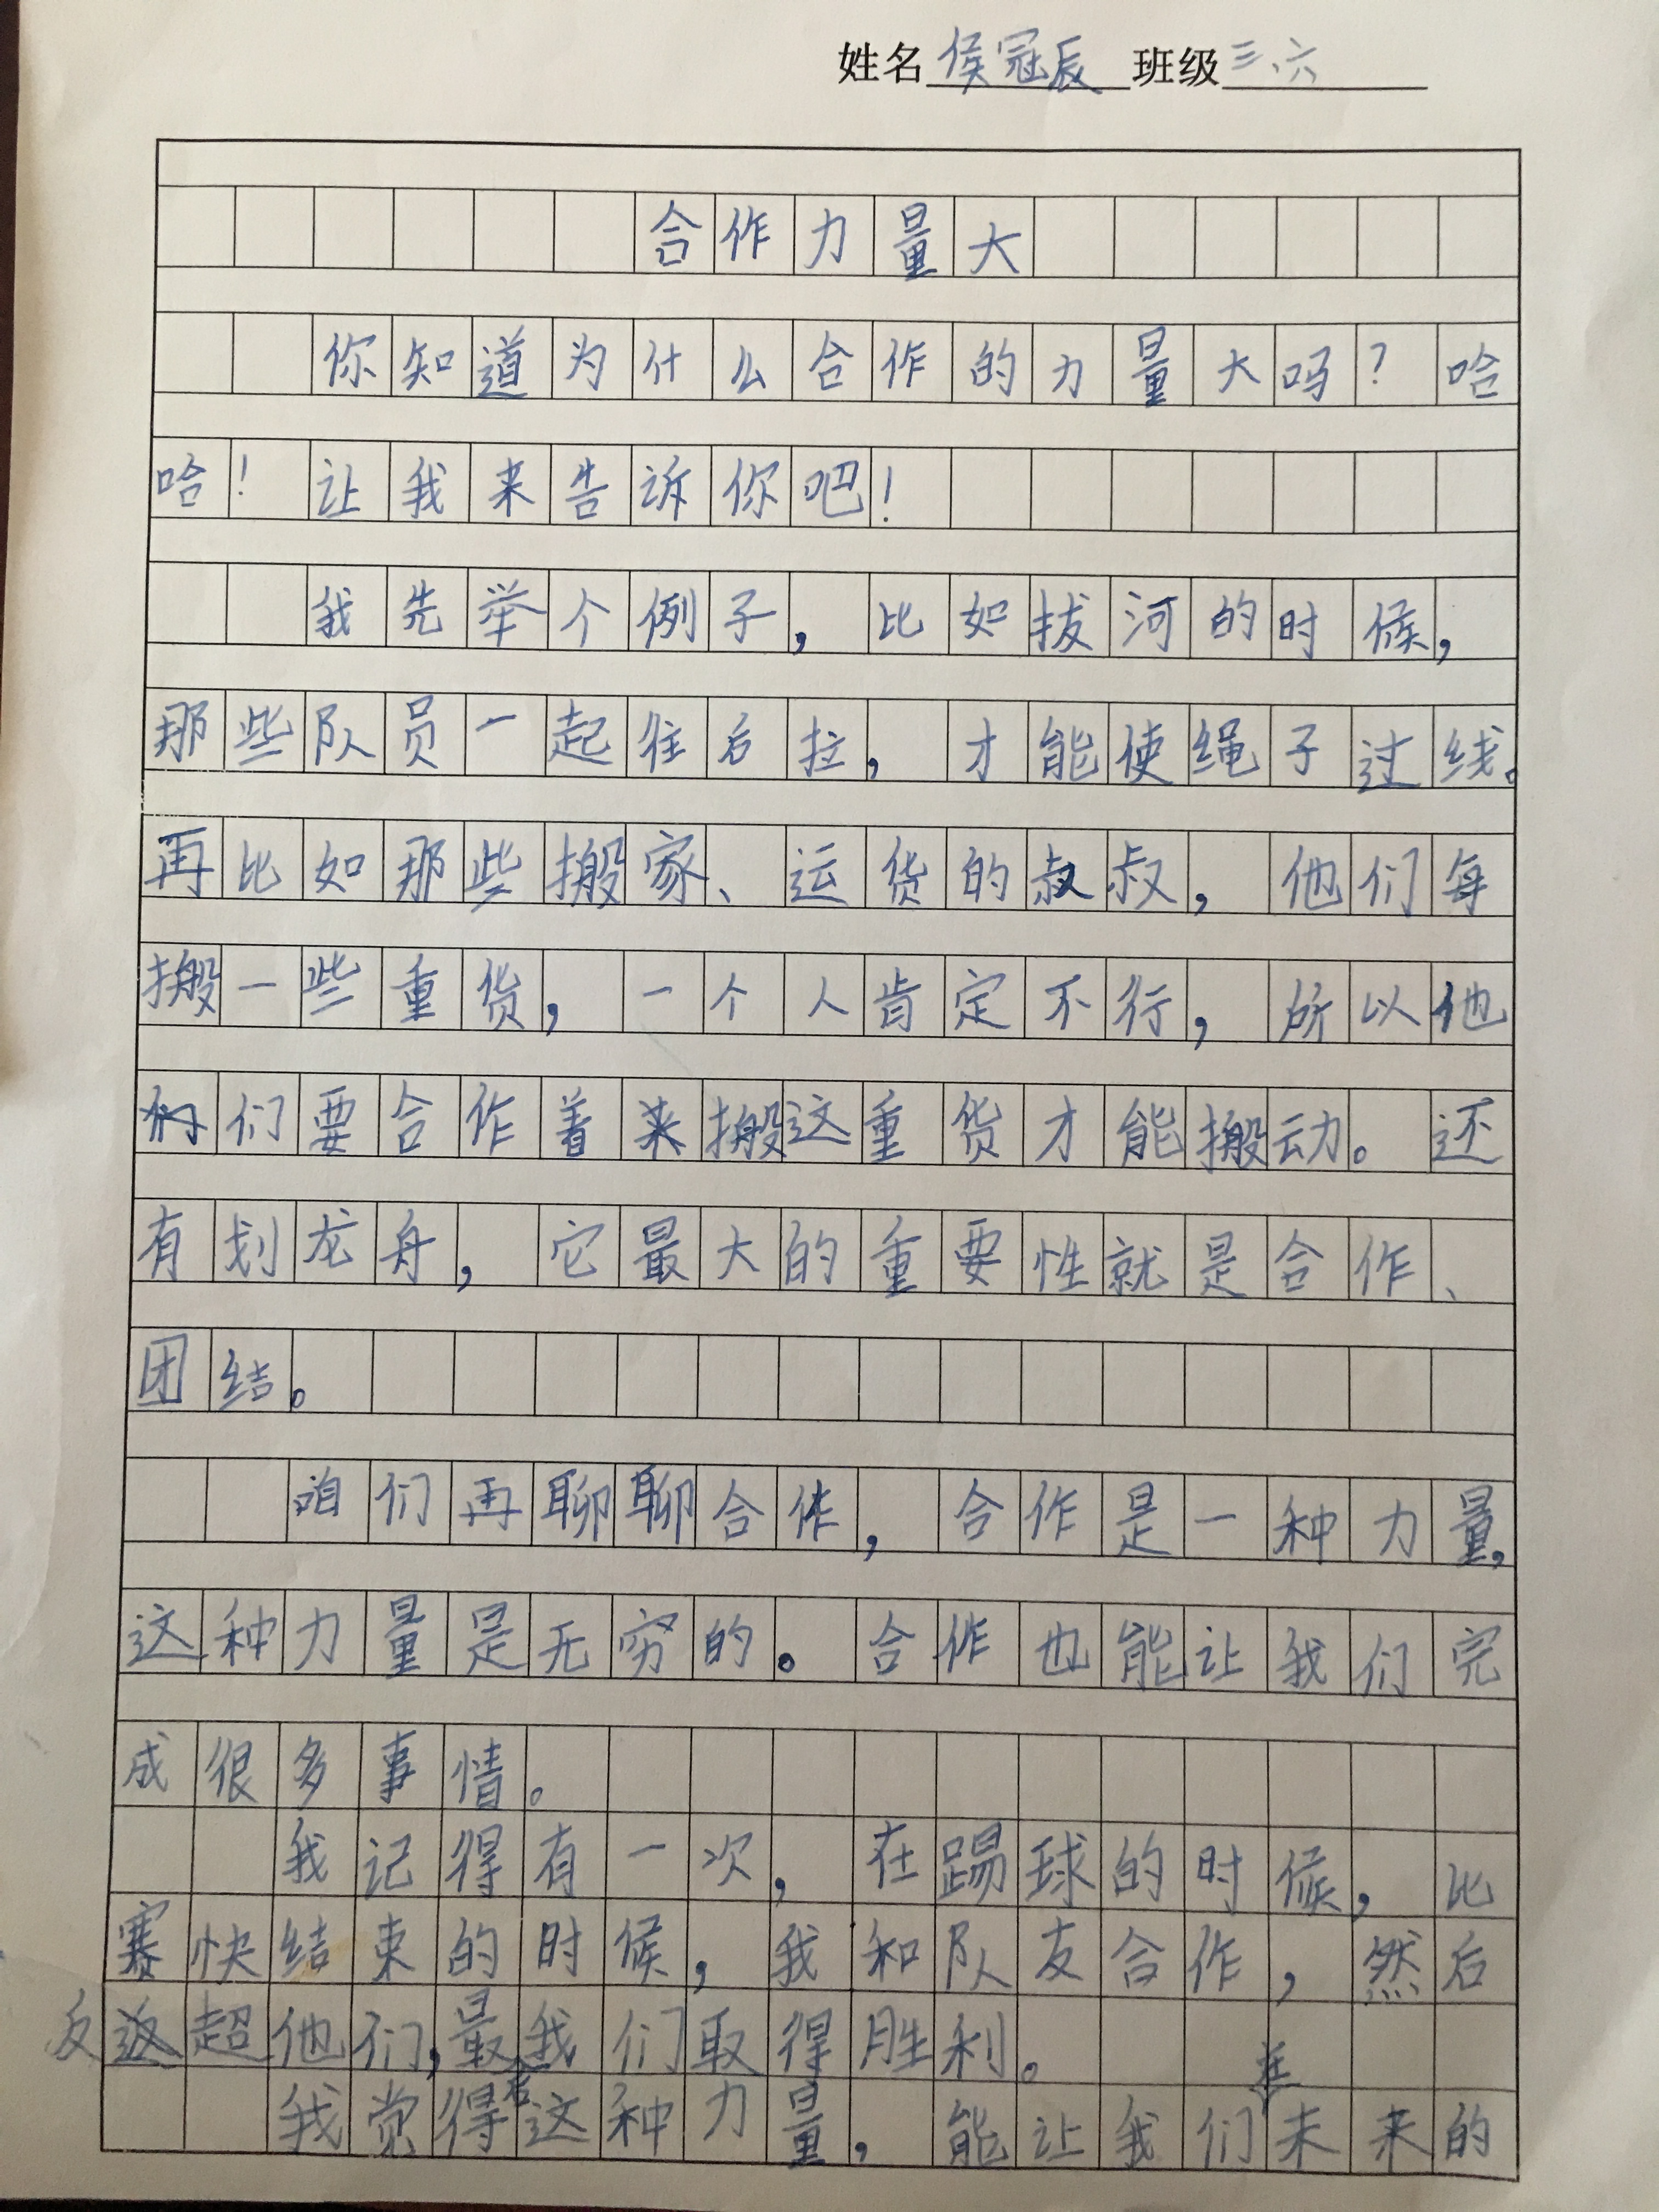 姓名 侯冠辰 班级 三、六
合作力量大
你知道为什么合作的力量大吗？哈
哈！让我来告诉你吧！
我先举个例子，比如拔河的时候，
那些队员一起往后拉，才能使绳子过线。
再比如那些搬家、运货的叔叔，他们每
搬一些重货，一个人肯定不行，所以他
们要合作着来搬这重货才能搬动。还
有划龙舟，它最大的重要性就是合作、
团结。
咱们再聊聊合作，合作是一种力量，
这种力量是无穷的。合作也能让我们完
成很多事情。
我记得有一次，在踢球的时候，比
赛快结束的时候，我和队友合作，然后
反超他们，最后我们取得胜利。
我觉得这种力量，能让我们在未来的